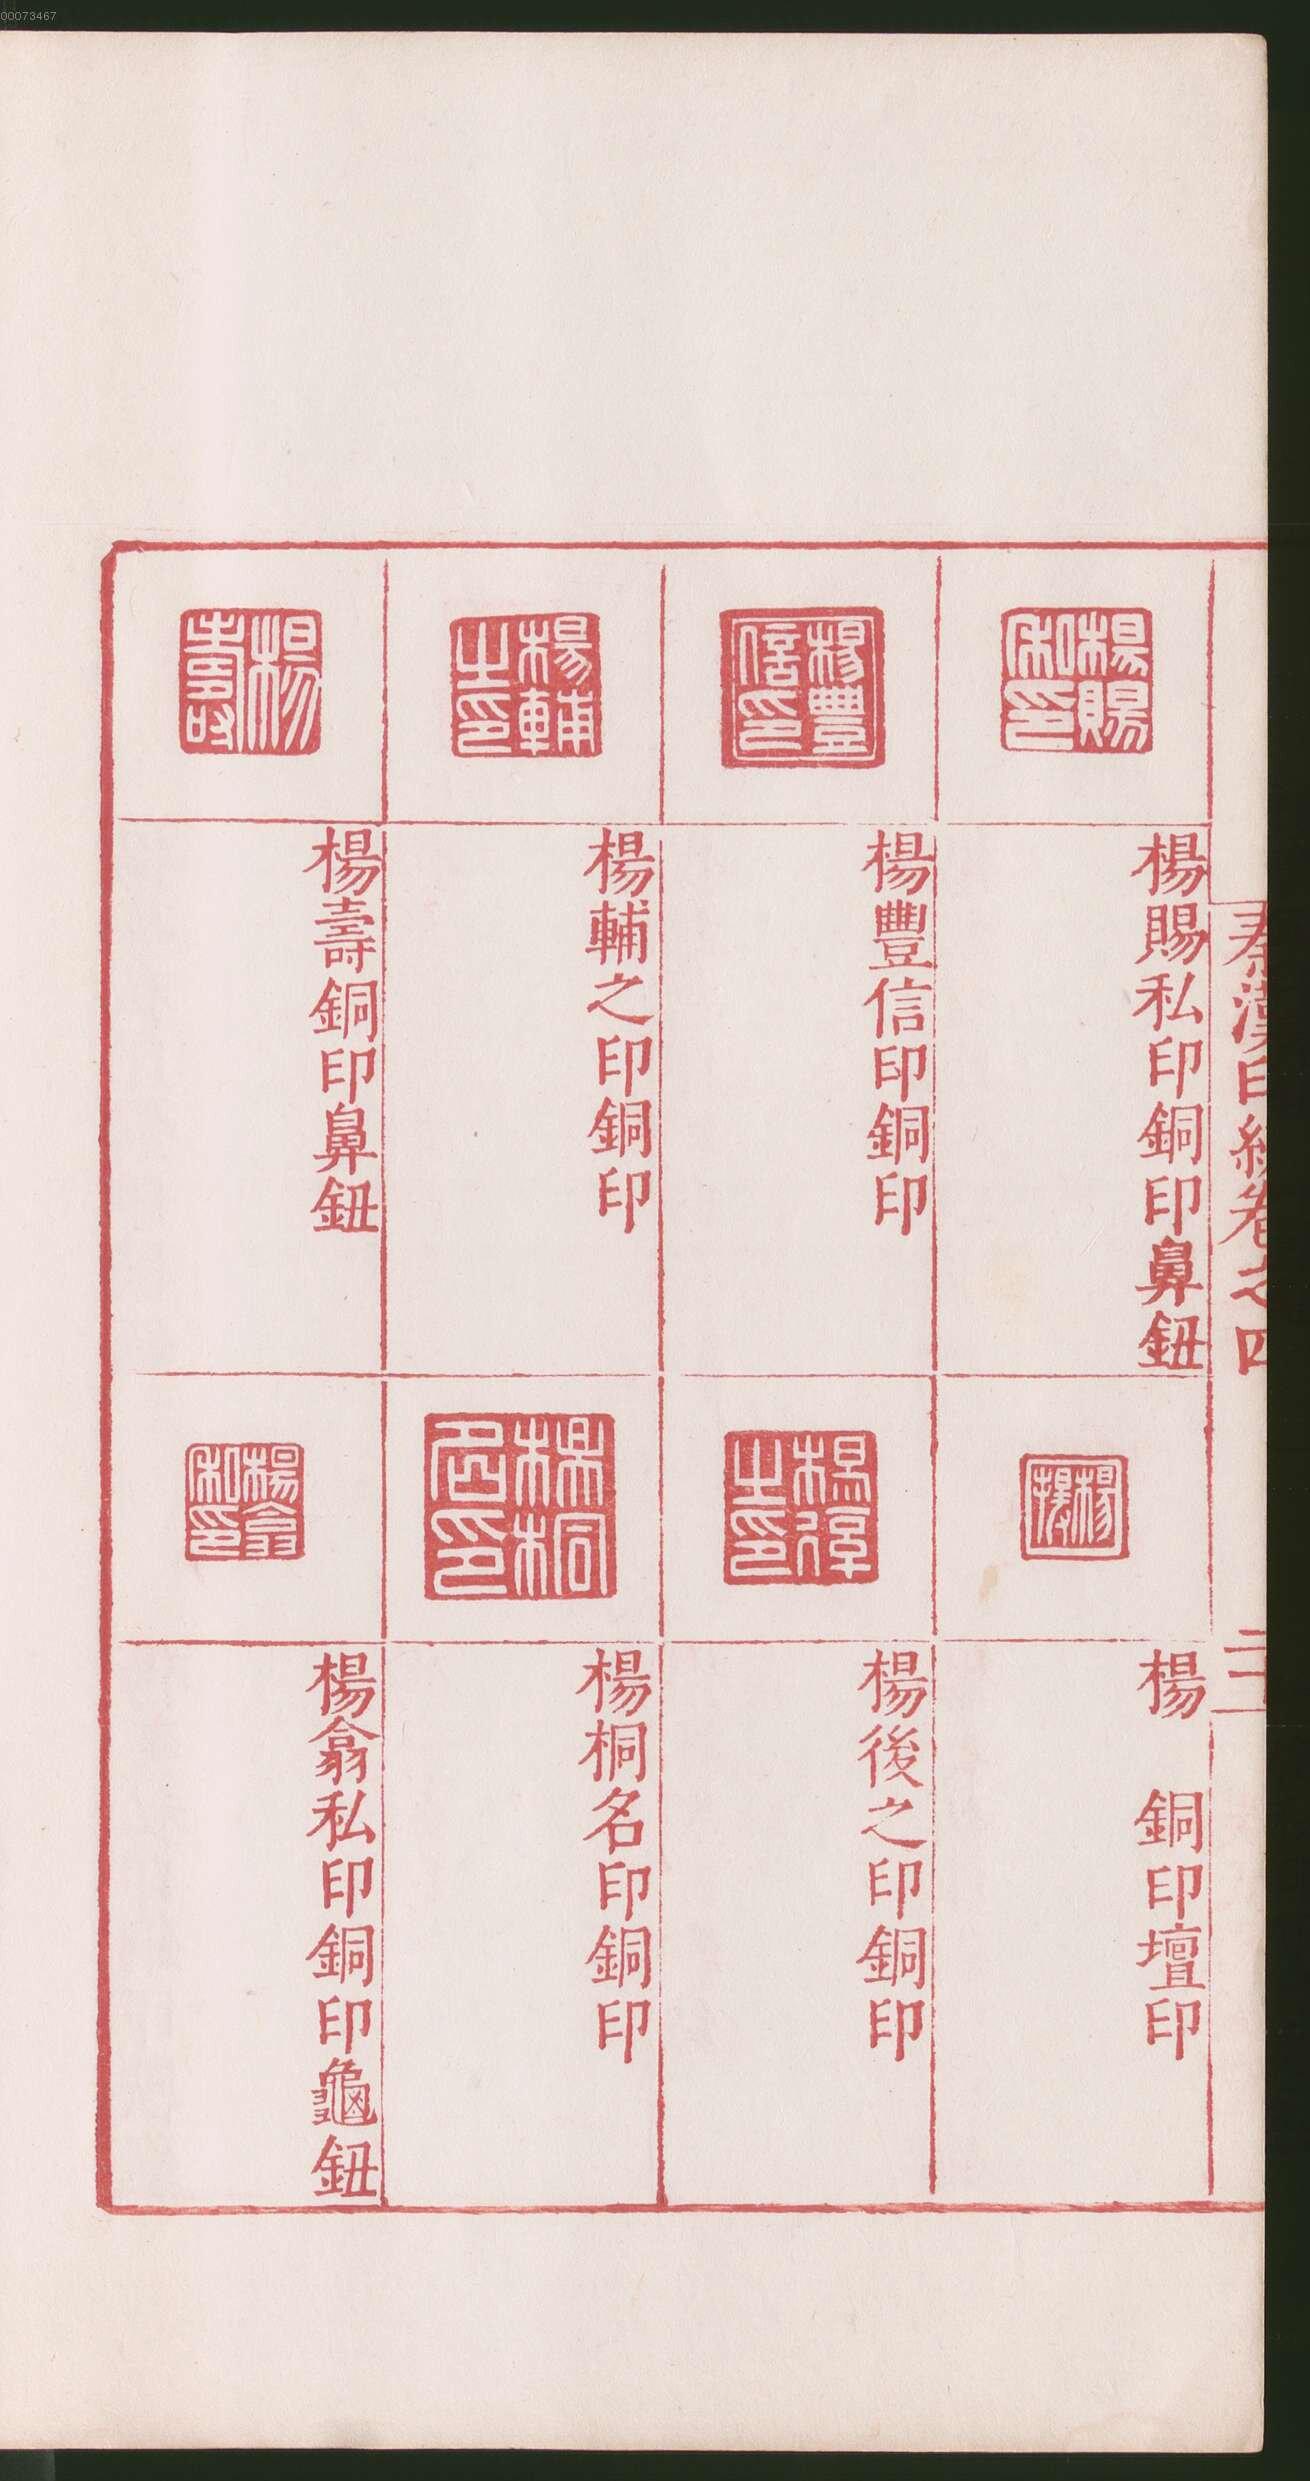 00073467
秦漢印統卷之四
楊賜私印
楊賜私印銅印鼻鈕
楊豐信印
楊豐信印銅印
楊輔之印
楊輔之印銅印
楊壽
楊壽銅印鼻鈕
楊　銅印壇印
楊後之印銅印
楊桐名印
楊桐名印銅印
楊翕私印
楊翕私印銅印龜鈕